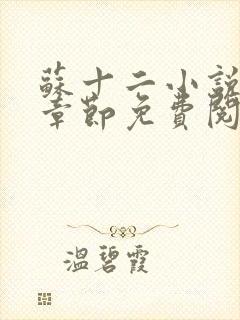 蘇十二小說
章節免費閱
溫碧霞